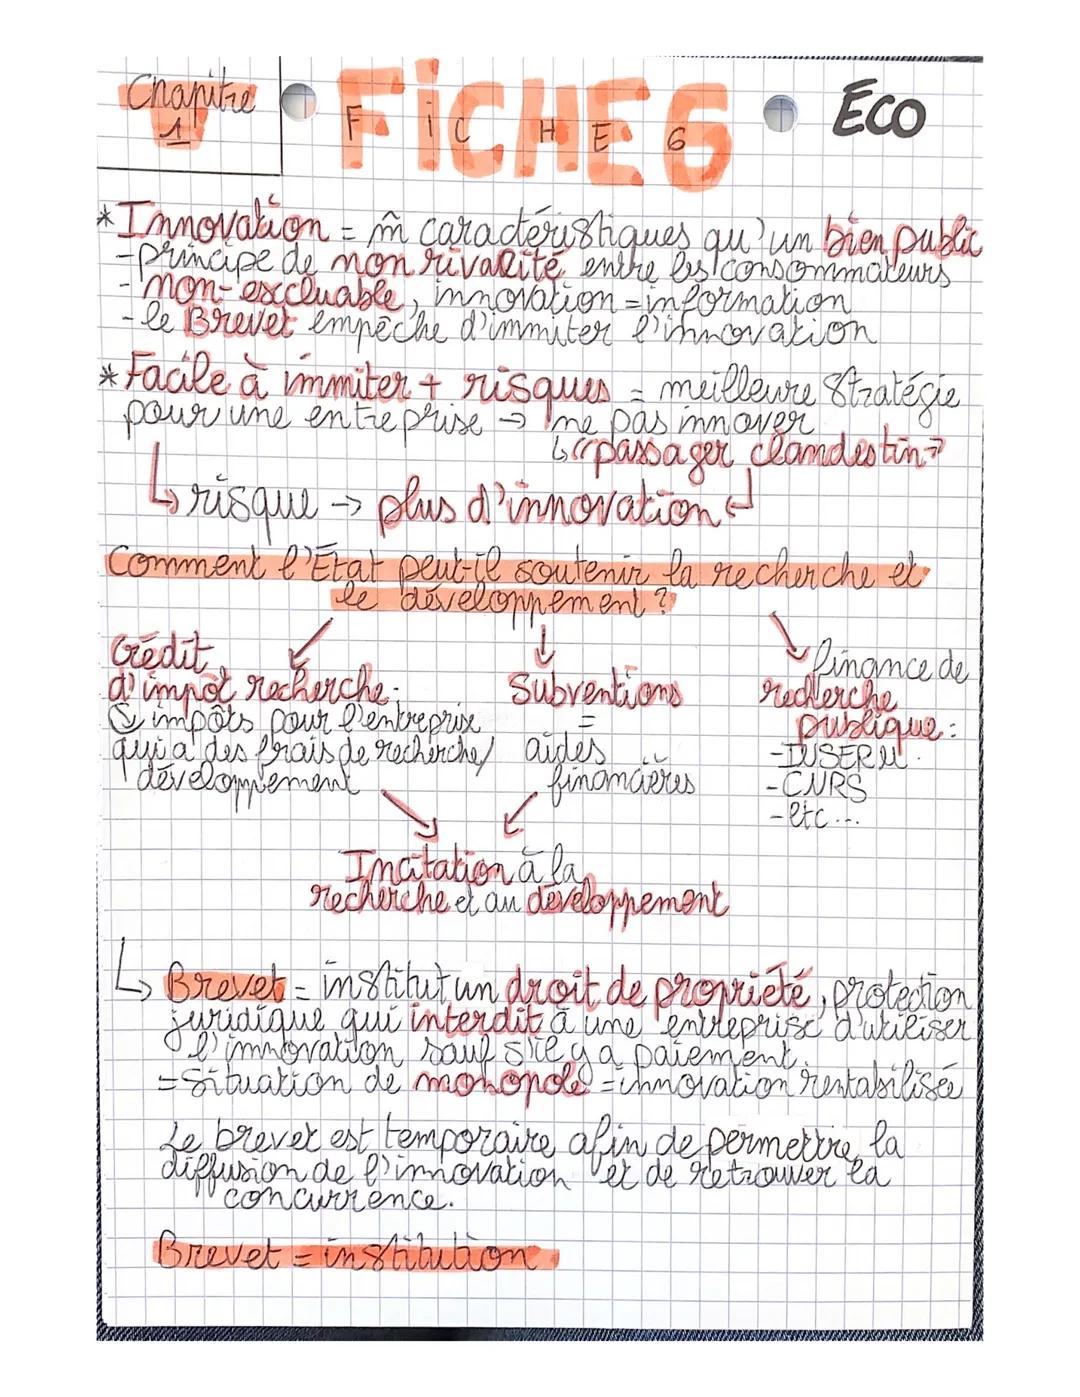 Chapitre
1
FiCHE 6
F i C H E 6
ÉCO
* Innovation = m̂ caractéristiques qu'un bien public
- principe de non rivalité entre les consommateurs
- non-excluable, innovation = information
- le Brevet empêche d'immiter l'innovation
* Facile à immiter + risques = meilleure stratégie
pour une entreprise → ne pas innover
↳ "passager clandestin"
↳ risque → plus d'innovation ↲
Comment l'État peut-il soutenir la recherche et
le développement ?
Crédit
d'impôt recherche:
↘ impôts pour l'entreprise
qui a des frais de recherche/
développement
Subventions
=
aides
financières
finance de
recherche
publique :
- INSERM.
- CNRS
- etc...
Incitation à la
recherche et au développement
↳ Brevet = institut un droit de propriété, protection
juridique qui interdit à une entreprise d'utiliser
l'innovation sauf s'il y a paiement.
= situation de monopole = innovation rentabilisée
Le brevet est temporaire afin de permettre la
diffusion de l'innovation et de retrouver la
concurrence.
Brevet = institution.